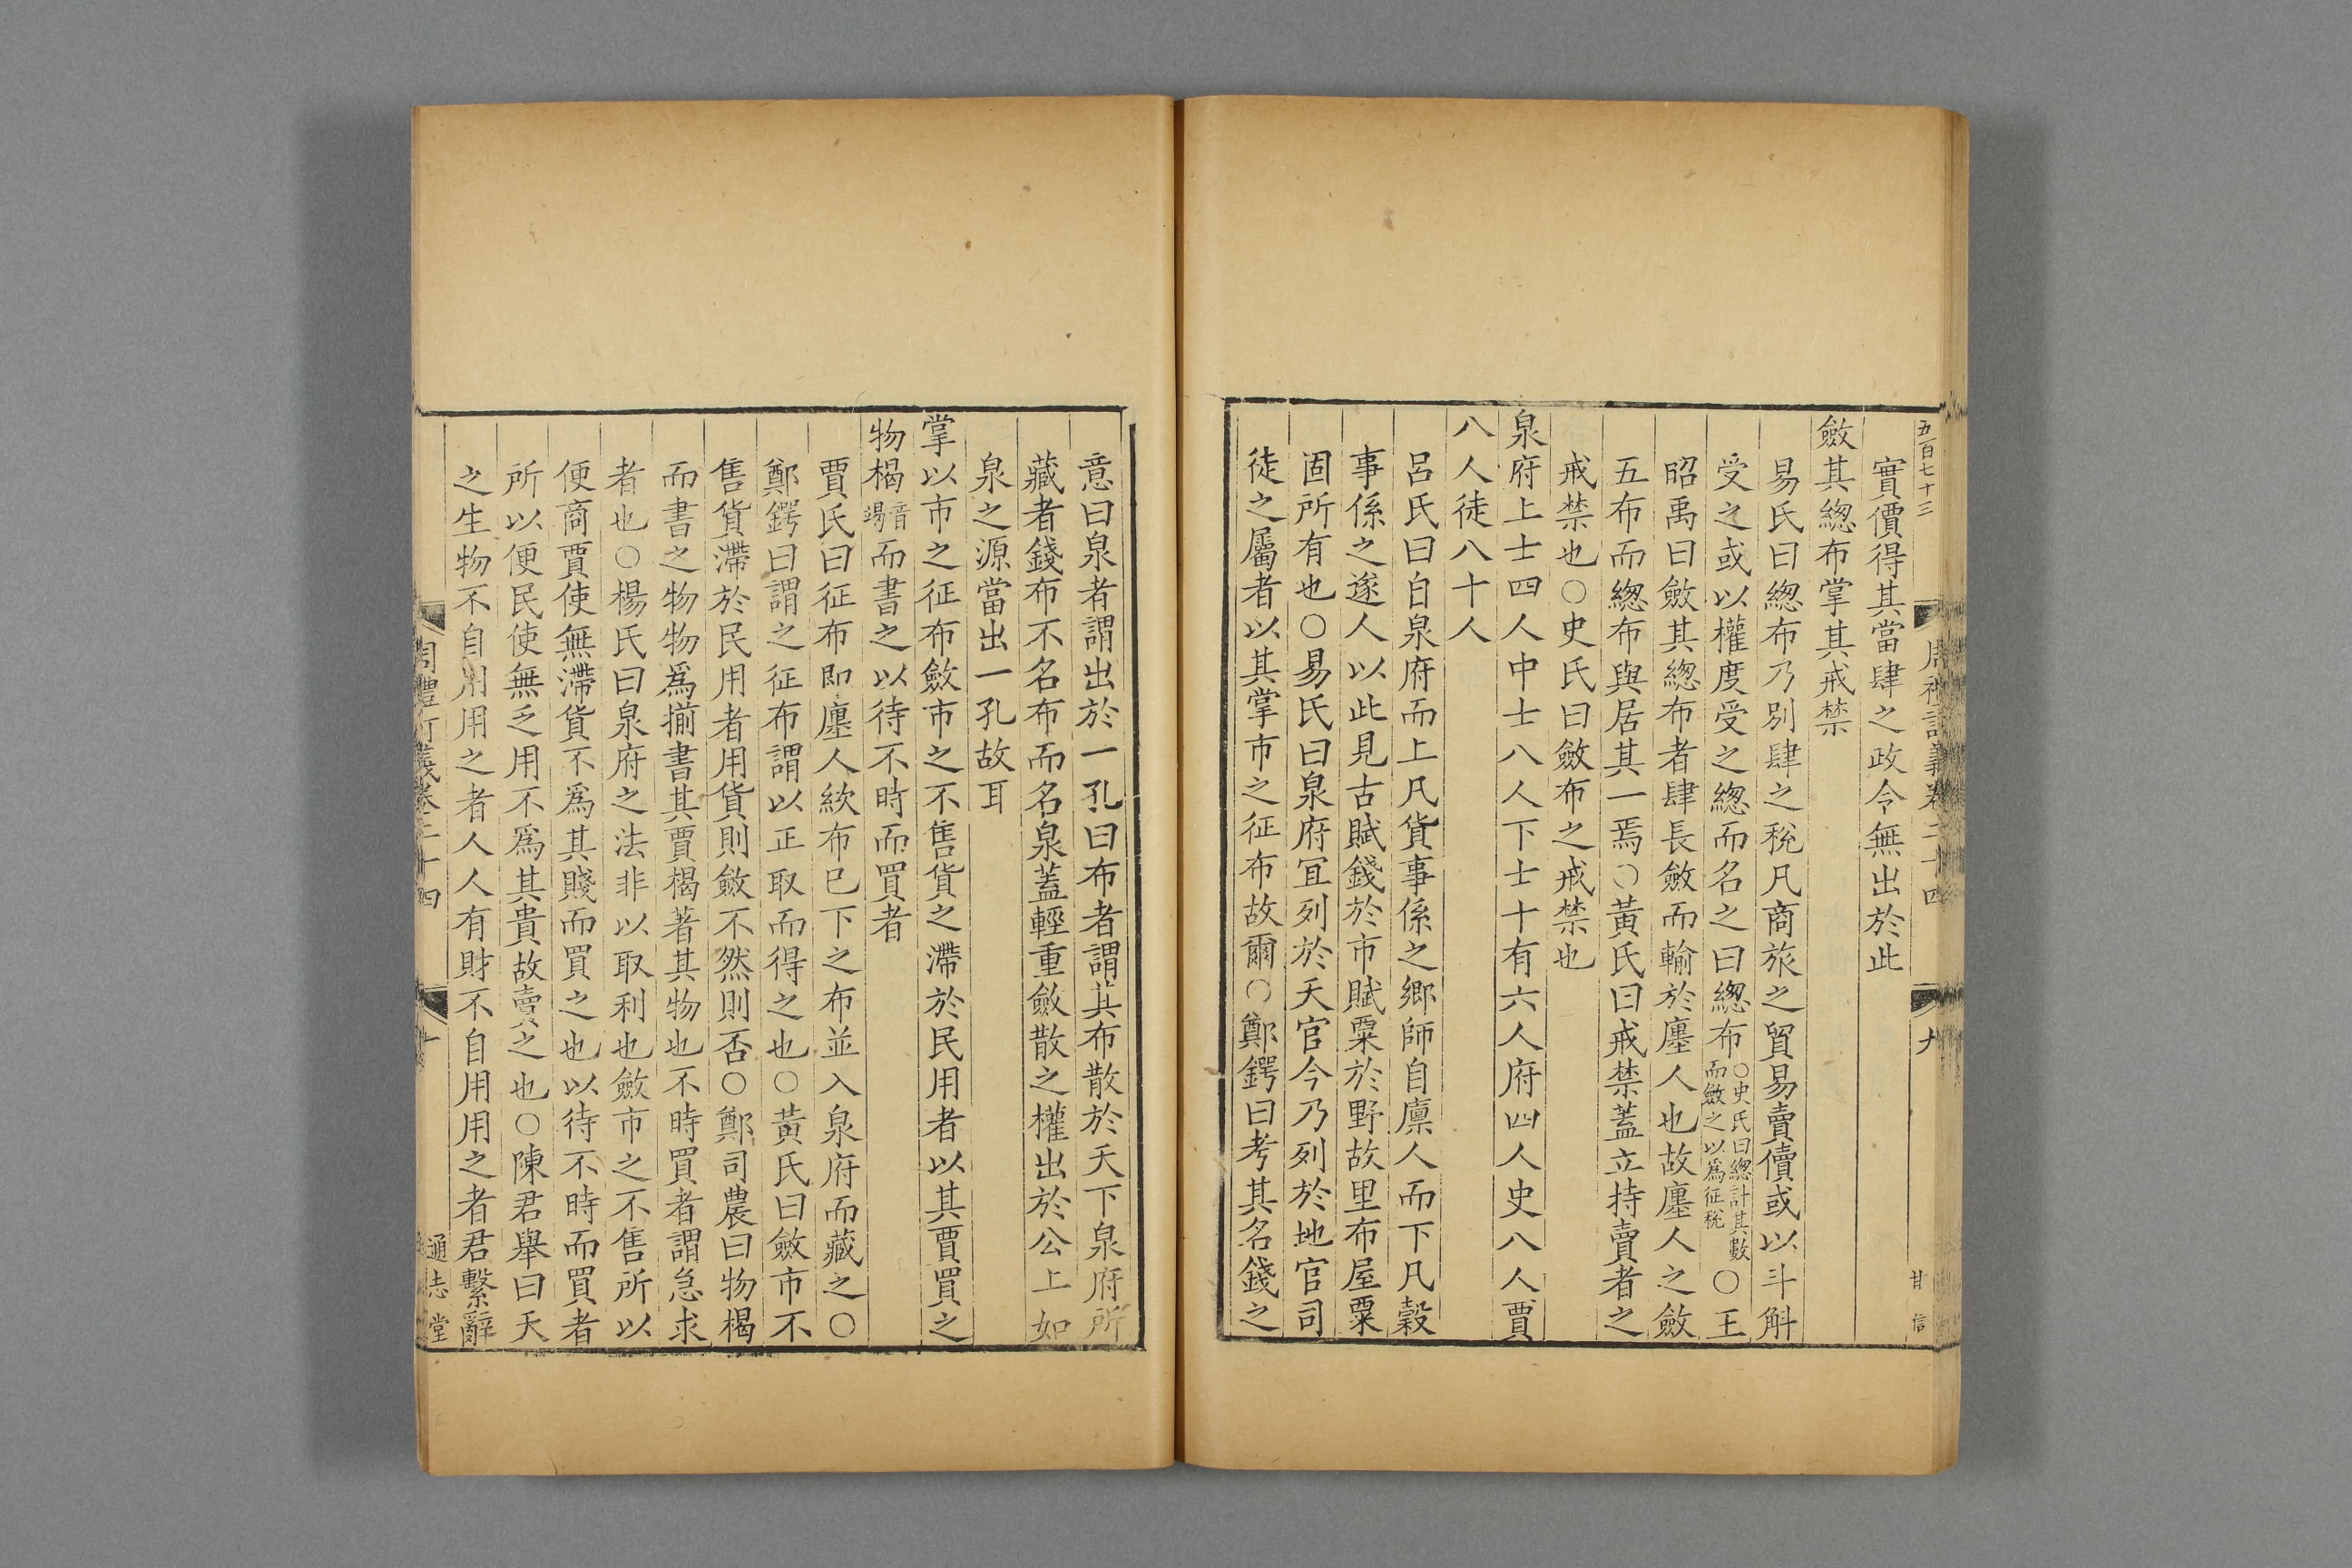 五百七十三
周禮訂義卷二十四
九
甘信
實價得其當肆之政令無出於此
斂其緫布掌其戒禁
易氏曰緫布乃別肆之稅凡商旅之貿易賣儥或以斗斛
受之或以權度受之緫而名之曰緫布○史氏曰總計其數而斂之以爲征稅○王
昭禹曰斂其緫布者肆長斂而輸於廛人也故廛人之斂
五布而緫布與居其一焉○黃氏曰戒禁蓋立持賣者之
戒禁也○史氏曰斂布之戒禁也
泉府上士四人中士八人下士十有六人府四人史八人賈
八人徒八十人
呂氏曰自泉府而上凡貨事係之鄉師自廩人而下凡穀
事係之遂人以此見古賦錢於市賦粟於野故里布屋粟
固所有也○易氏曰泉府冝列於天官今乃列於地官司
徒之屬者以其掌市之征布故爾○鄭鍔曰考其名錢之
意曰泉者謂出於一孔曰布者謂其布散於天下泉府所
藏者錢布不名布而名泉蓋輕重斂散之權出於公上如
泉之源當出一孔故耳
掌以市之征布斂市之不售貨之滯於民用者以其賈買之
物楬音竭而書之以待不時而買者
賈氏曰征布即廛人絘布已下之布並入泉府而藏之○
鄭鍔曰謂之征布謂以正取而得之也○黃氏曰斂市不
售貨滯於民用者用貨則斂不然則否○鄭司農曰物楬
而書之物物爲揃書其賈楬著其物也不時買者謂急求
者也○楊氏曰泉府之法非以取利也斂市之不售所以
便商賈使無滯貨不爲其賤而買之也以待不時而買者
所以便民使無乏用不爲其貴故賣之也○陳君舉曰天
之生物不自用用之者人人有財不自用用之者君繫辭
周禮訂義卷二十四
十
通志堂